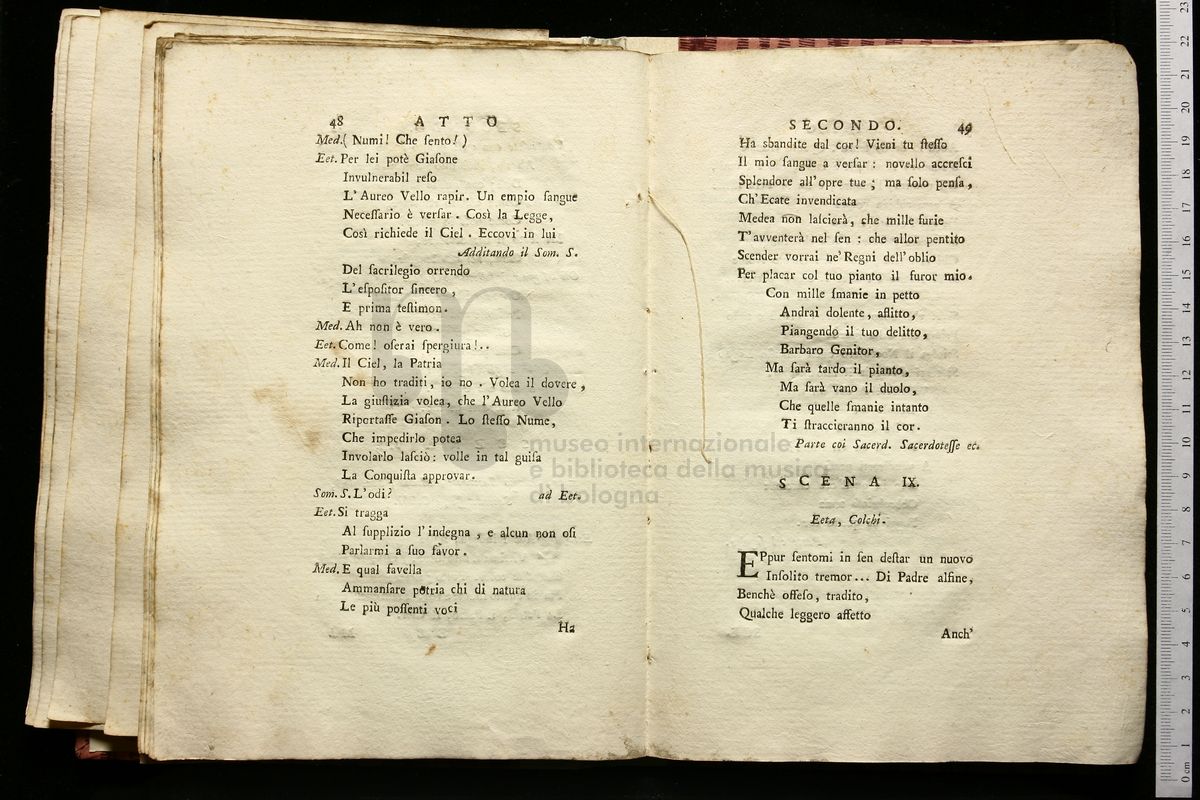 48 ATTO
Med. ( Numi! Che ſento! )
Eet. Per lei potè Giaſone
Invulnerabil reſo
L'Aureo Vello rapir. Un empio ſangue
Neceſſario è verſar. Così la Legge,
Così richiede il Ciel. Eccovi in lui
Additando il Som. S.
Del ſacrilegio orrendo
L'eſpoſitor ſincero,
E prima teſtimon.
Med. Ah non è vero.
Eet. Come! oſerai ſpergiura!..
Med. Il Ciel, la Patria
Non ho traditi, io no. Volea il dovere,
La giuſtizia volea, che l'Aureo Vello
Riportaſſe Giaſon. Lo ſteſſo Nume,
Che impedirlo potea
Involarlo laſciò: volle in tal guiſa
La Conquiſta approvar.
Som. S. L'odi? ad Eet.
Eet. Si tragga
Al ſupplizio l'indegna, e alcun non oſi
Parlarmi a ſuo favor.
Med. E qual favella
Ammanſare potria chi di natura
Le più poſſenti voci
Ha
SECONDO. 49
Ha sbandite dal cor! Vieni tu ſteſſo
Il mio ſangue a verſar: novello accreſci
Splendore all'opre tue; ma ſolo penſa,
Ch'Ecate invendicata
Medea non laſcierà, che mille furie
T'avventerà nel ſen: che allor pentito
Scender vorrai ne' Regni dell'oblio
Per placar col tuo pianto il furor mio.
Con mille ſmanie in petto
Andrai dolente, aflitto,
Piangendo il tuo delitto,
Barbaro Genitor,
Ma ſarà tardo il pianto,
Ma ſarà vano il duolo,
Che quelle ſmanie intanto
Ti ſtraccieranno il cor.
Parte coi Sacerd. Sacerdoteſſe ec.
SCENA IX.
Eeta, Colchi.
EPpur ſentomi in ſen deſtar un nuovo
Inſolito tremor... Di Padre alfine,
Benchè offeſo, tradito,
Qualche leggero affetto
Anch'
museo internazionale
e biblioteca della musica
di bologna
0 cm 1 2 3 4 5 6 7 8 9 10 11 12 13 14 15 16 17 18 19 20 21 22 23